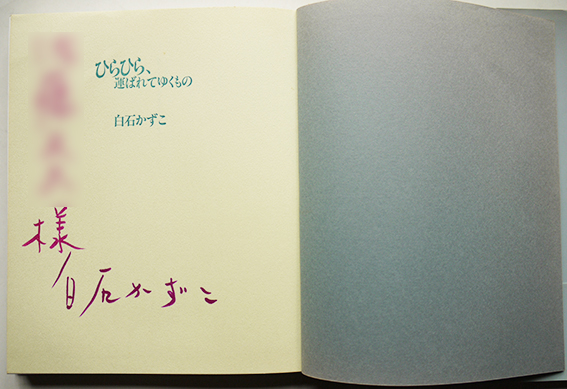 ひらひら、
運ばれてゆくもの
白石かずこ
様
白石かずこ